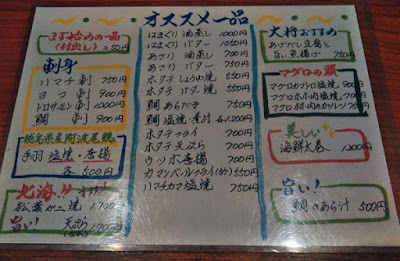 まず始めの一品
(付出し) 250円
刺身
ハマチ刺 750円
ヨコ刺 900円
トロサモン刺 1000円
鯛刺 900円
徳島県産阿波尾鶏
手羽 塩焼・唐揚
各 500円
北海!! オススメ
松葉ガニ焼 1,700
旨い! 天ぷら
1,200円
オススメ一品
はまぐり 酒蒸し 1000円
はまぐり バター 1050円
あさり 酒蒸し 700円
あさり バター 750円
ホタテ しょうゆ焼 550円
ホタテ バター焼 550円
鯛 あらだき 750円
鯛 塩焼、煮付 各1,200円
ホタテフライ 700円
ホタテ天ぷら 700円
ウツボ唐揚 700円
カマンベールフライ 550円
ハマチカマ塩焼 750円
大将おすすめ
あげだし豆腐と
旨い魚揚げ 750円
マグロの頭
マグロカブトロ塩焼 900円
マグロホホ肉塩焼 700円
マグロホホ肉のカツレツ 750円
美しい
海鮮太巻 1,200円
旨い!
鯛のあら汁 500円